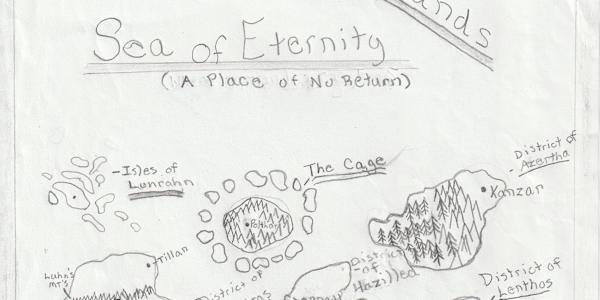 ands
Sea of Eternity
(A Place of No Return)
- Isles of
Lunrahn
The Cage
District of
Azertha
Xanzar
Tillan
District
-of-
Hazilled
District of
Lenthos
District of